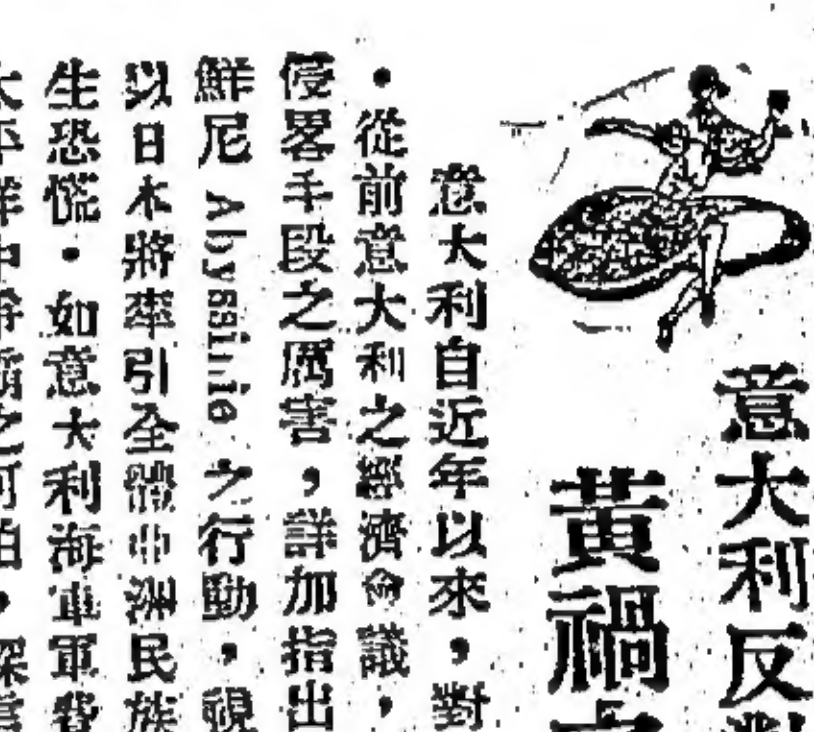 意大利反對
黃禍
意大利自近年以來，對
・從前意大利之經濟會議，
侵畧手段之厲害，詳加指出
鮮尼 Abyssinie 之行動，視
以日本將率引全體亞洲民族
生恐慌・如意大利海軍軍費
太平洋中爭霸之可怕，深